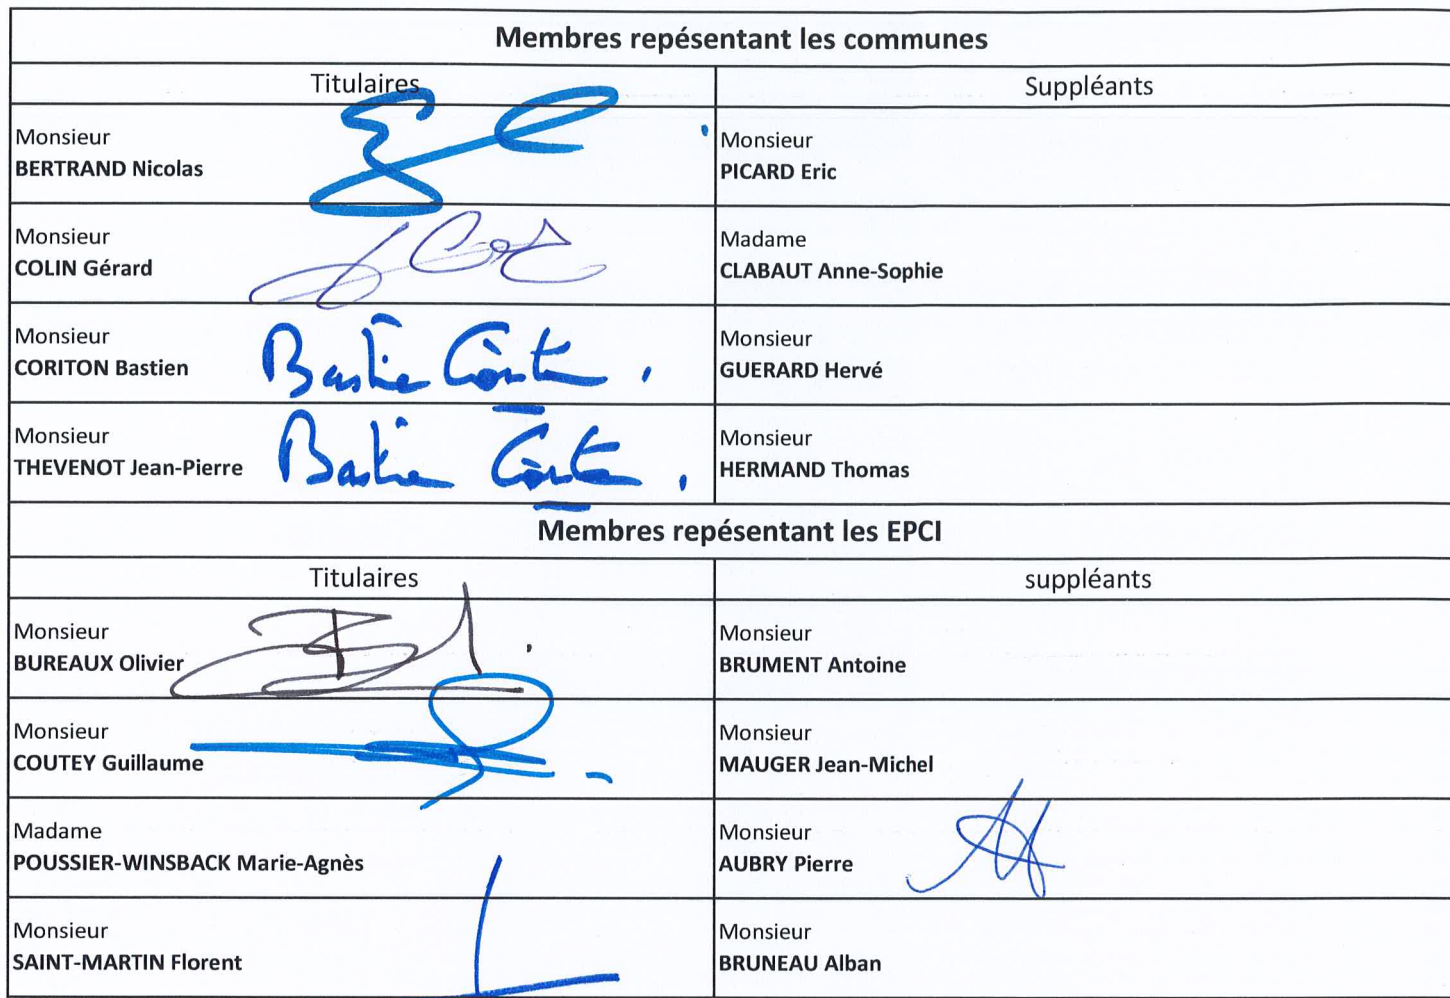 Membres repésentant les communes
Titulaires
Suppléants
Monsieur
BERTRAND Nicolas
Monsieur
PICARD Eric
Monsieur
COLIN Gérard
Madame
CLABAUT Anne-Sophie
Monsieur
CORITON Bastien
Bastien Coriton
Monsieur
GUERARD Hervé
Monsieur
THEVENOT Jean-Pierre
Bastien Coriton
Monsieur
HERMAND Thomas
Membres repésentant les EPCI
Titulaires
suppléants
Monsieur
BUREAUX Olivier
Monsieur
BRUMENT Antoine
Monsieur
COUTEY Guillaume
Monsieur
MAUGER Jean-Michel
Madame
POUSSIER-WINSBACK Marie-Agnès
Monsieur
AUBRY Pierre
Monsieur
SAINT-MARTIN Florent
Monsieur
BRUNEAU Alban